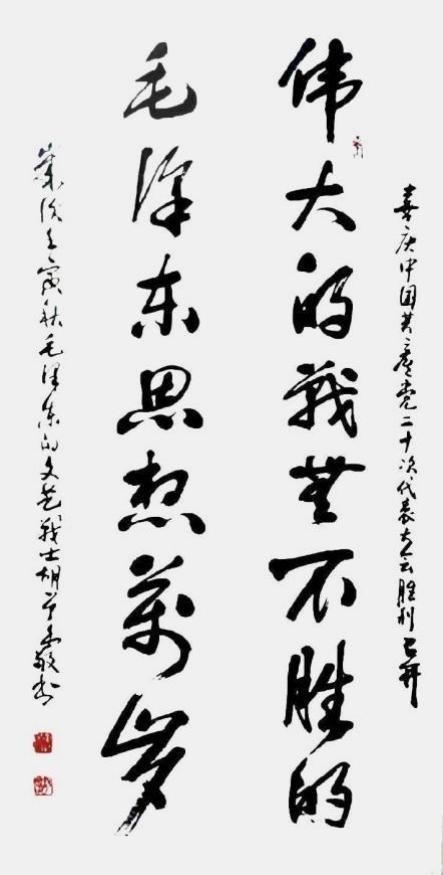 喜庆中国共产党二十次代表大会胜利召开
伟大的战无不胜的
毛泽东思想万岁
岁次壬寅秋毛泽东的文艺战士胡
敬书